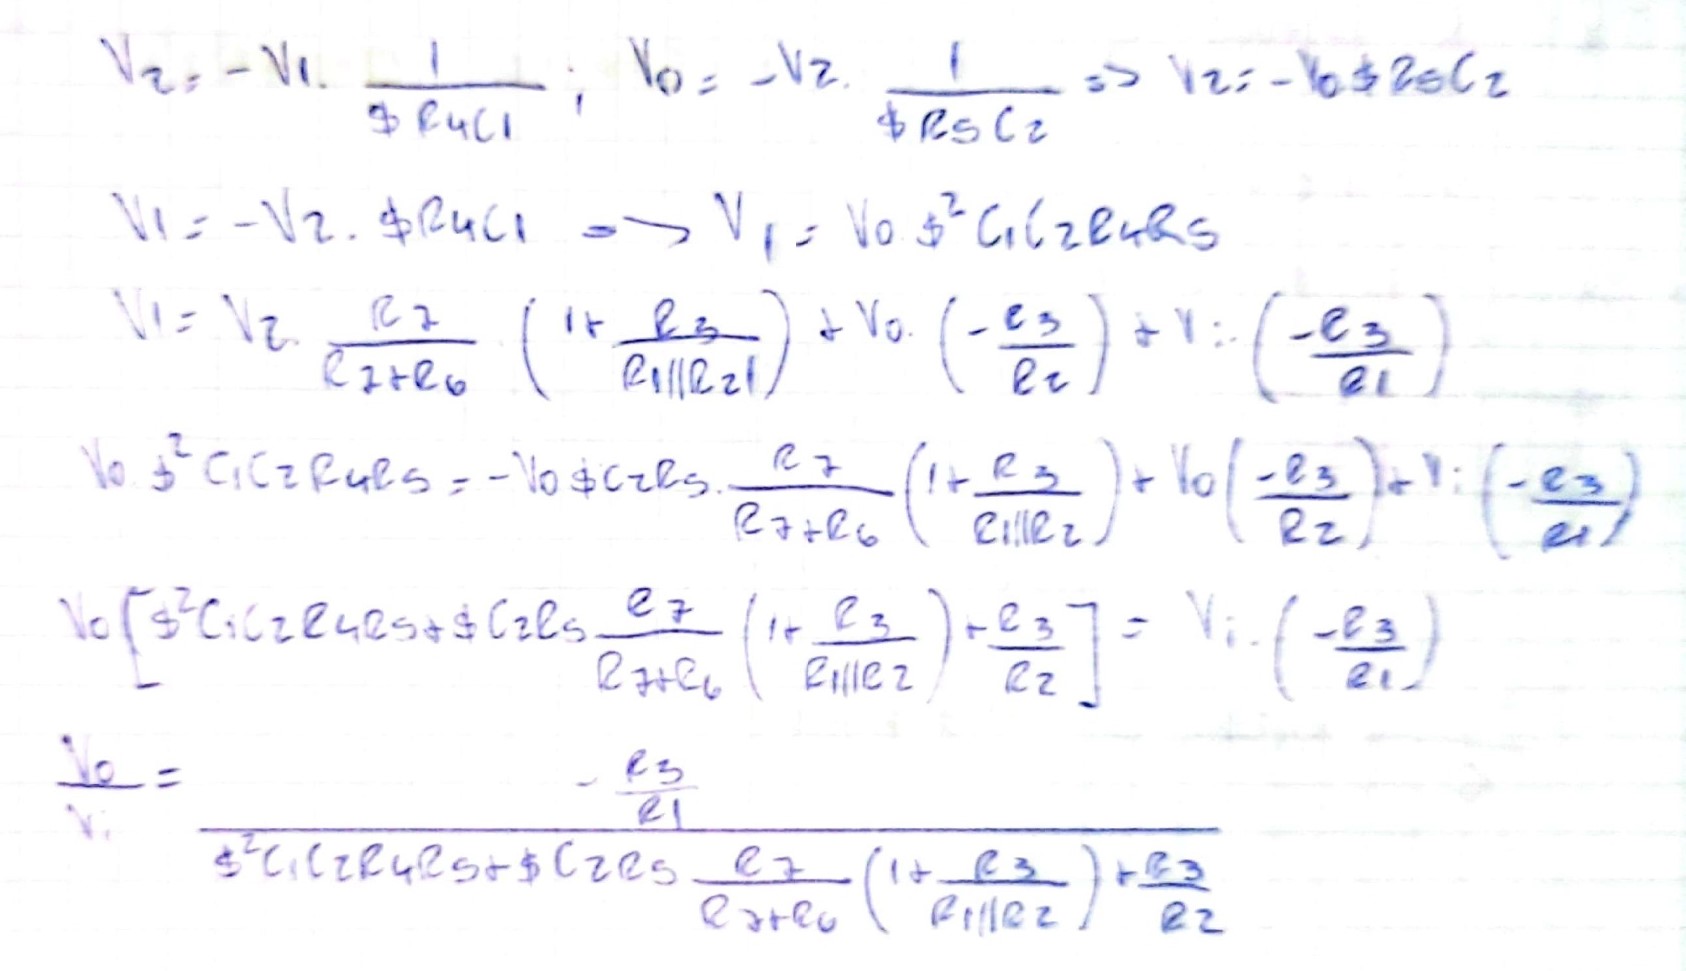 V2 = -V1 · 1/($R4C1) ; V0 = -V2 · 1/($R5C2) => V2 = -V0$R5C2
V1 = -V2 · $R4C1 => V1 = V0 $²C1C2R4R5
V1 = V2 · R7/(R7+R6) (1 + R3/(R1||R2)) + V0 · (-R3/R2) + Vi · (-R3/R1)
V0 $²C1C2R4R5 = -V0$C2R5 · R7/(R7+R6) (1 + R3/(R1||R2)) + V0 (-R3/R2) + Vi (-R3/R1)
V0 [$²C1C2R4R5 + $C2R5 R7/(R7+R6) (1 + R3/(R1||R2)) + R3/R2] = Vi · (-R3/R1)
V0/Vi = (-R3/R1) / ($²C1C2R4R5 + $C2R5 R7/(R7+R6) (1 + R3/(R1||R2)) + R3/R2)